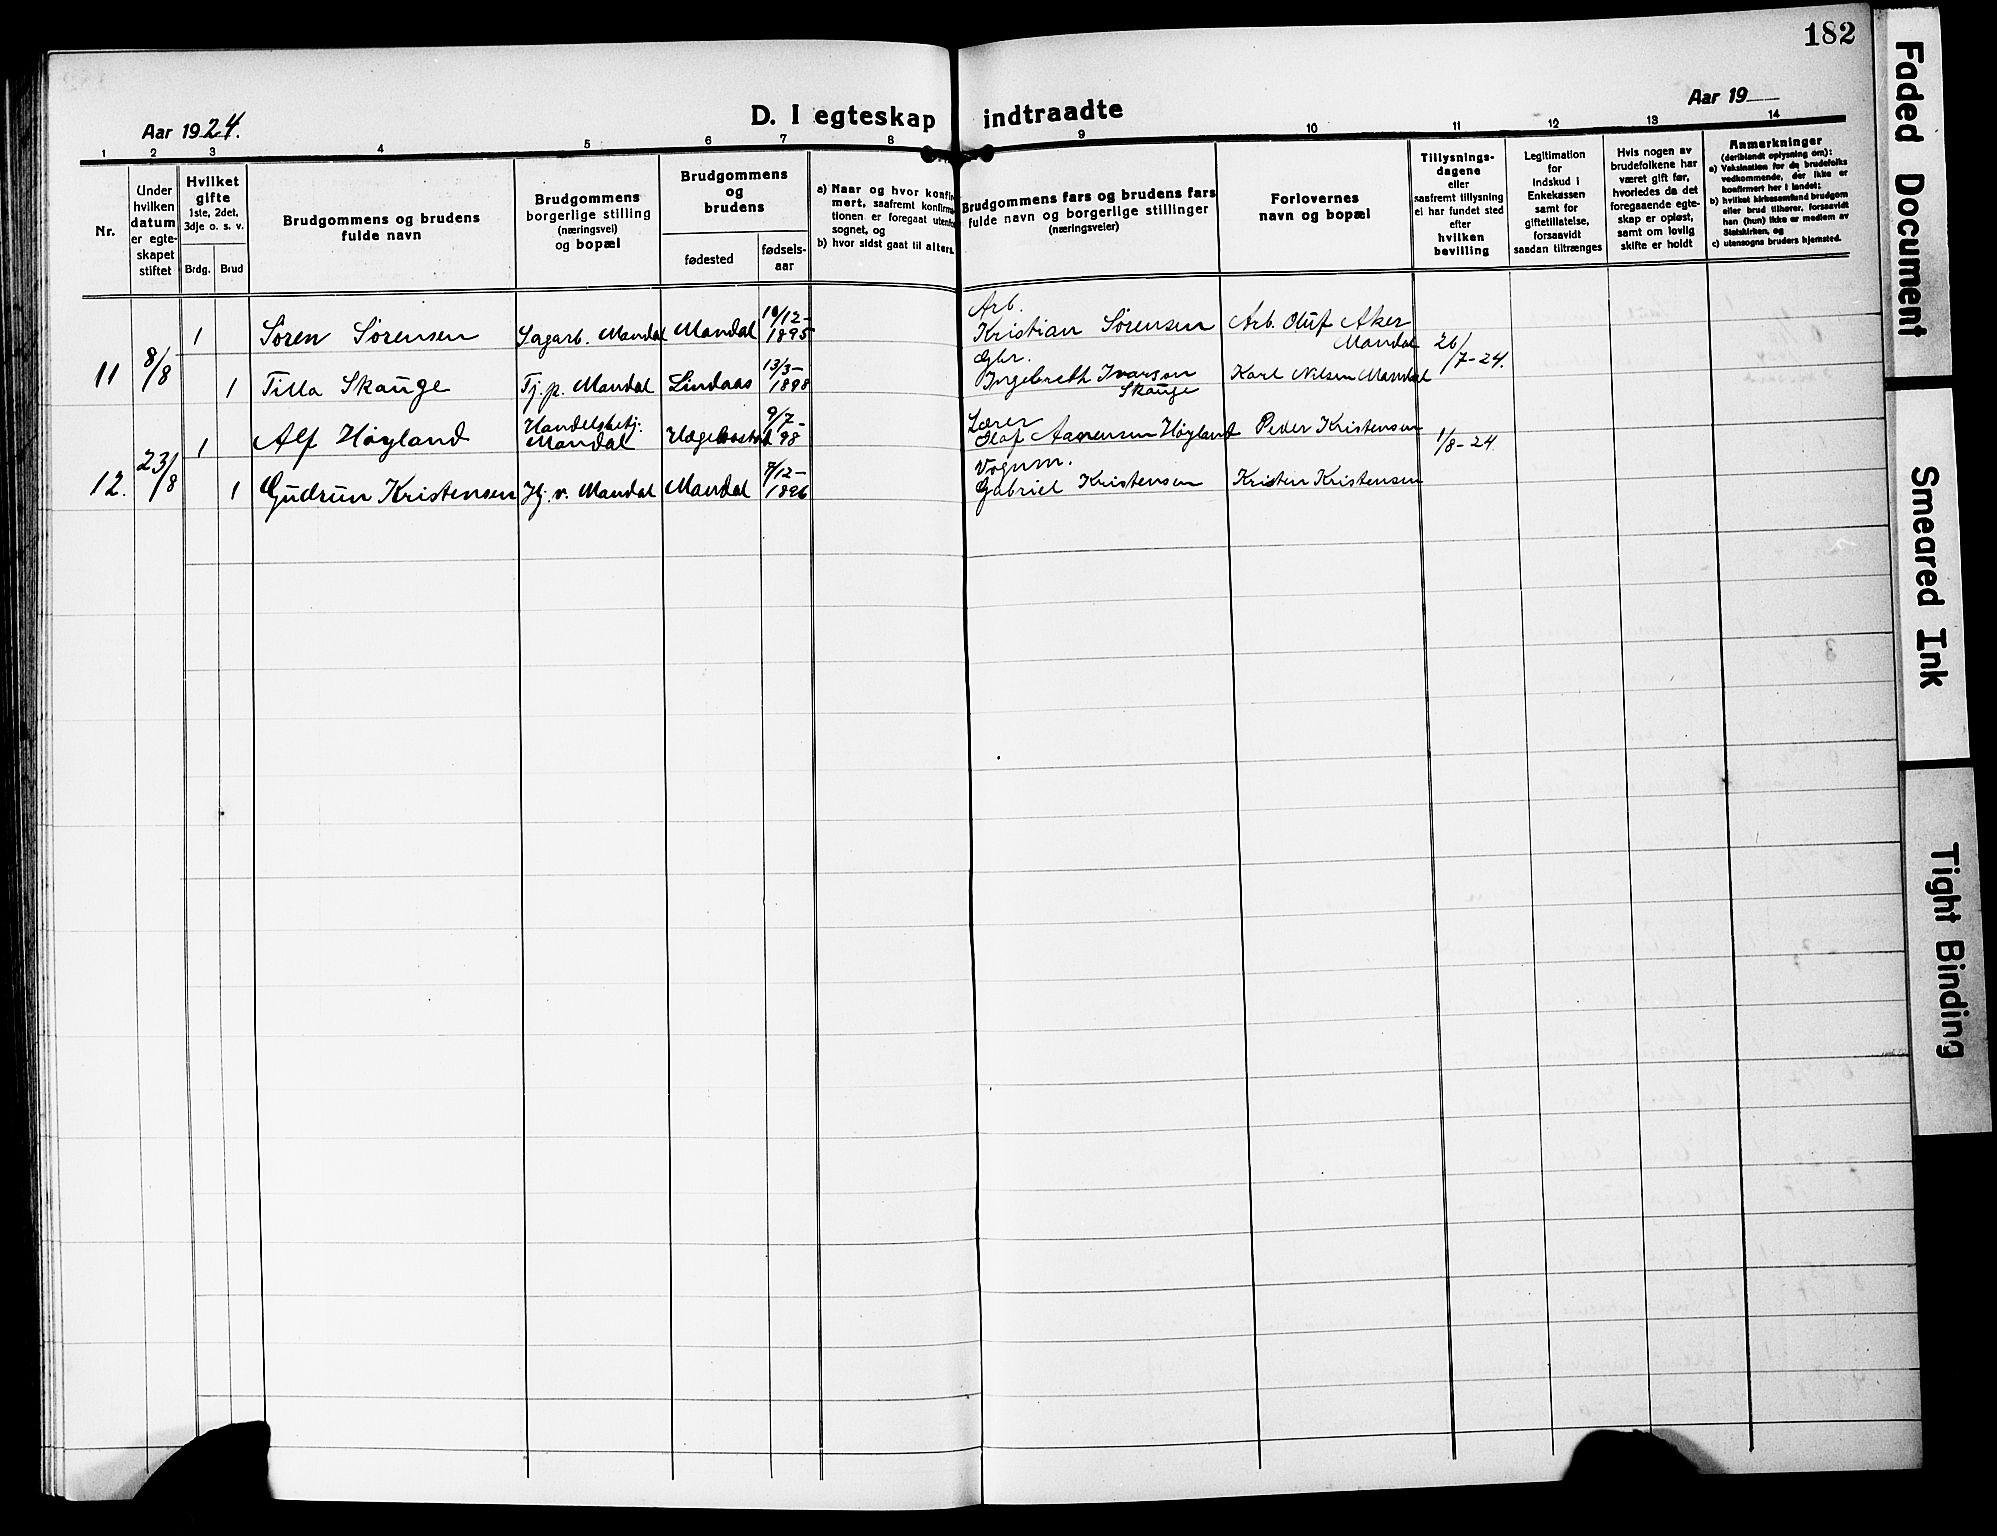 182
Aar 1924.
D. I egteskap indtraadte
Aar 19
1 2 3 4 5 6 7 8 9 10 11 12 13 14
Nr.
Under hvilken datum er egte-skapet stiftet
Hvilket gifte
1ste, 2det, 3dje o. s. v.
Brdg. Brud
Brudgommens og brudens
fulde navn
Brudgommens
borgerlige stilling
(næringsvei)
og bopæl
Brudgommens
og
brudens
fødested
fødsels-
aar
a) Naar og hvor konfir
mert, saafremt konfirma
tionen er foregaat utenfo
sognet, og
b) hvor sidst gaat til alters.
Brudgommens fars og brudens fars
fulde navn og borgerlige stillinger
(næringsveier)
Forlovernes
navn og bopæl
Tillysnings-
dagene
eller
saafremt tillysning
ei har fundet sted
efter
hvilken
bevilling
Legitimation
for
Indskud i
Enkekassen
samt for
giftetillatelse,
forsaavidt
saadan tiltrænges
Hvis nogen av
brudefolkene har
været gift før,
hvorledes da det
foregaaende egte-
skap er opløst,
samt om lovlig
skifte er holdt
Anmerkninger
(deriblandt oplysning om):
a) Vaksination for de brudefolks
vedkommende, der ikke er
konfirmert her i landet;
b) hvilket kirkesamfund brudgom
eller brud tilhører, forsaavidt
han (hun) ikke er medlem av
Statskirken, og
c) utensogns bruders hjemsted.
11 8/8
1 Søren Sørensen Sagarb. Mandal Mandal 16/12-1895 Arb. Kristian Sørensen Arb. Oluf Aker Mandal 26/7-24.
1 Tilla Skauge Tj. p. Mandal Lindaas 13/3-1898 Gbr. Ingebreth Ivarsen Skauge Karl Nilsen Mandal
12. 23/8
1 Alf Høyland Handelsbetj. Mandal Hægebostad 9/7-98 Lærer Olaf Aanensen Høyland Peder Kristensen 1/8-24
1 Gudrun Kristensen Hj. v. Mandal Mandal 7/12-1896 Vognm. Gabriel Kristensen Kristen Kristensen
Faded Document
Smeared Ink
Tight Binding